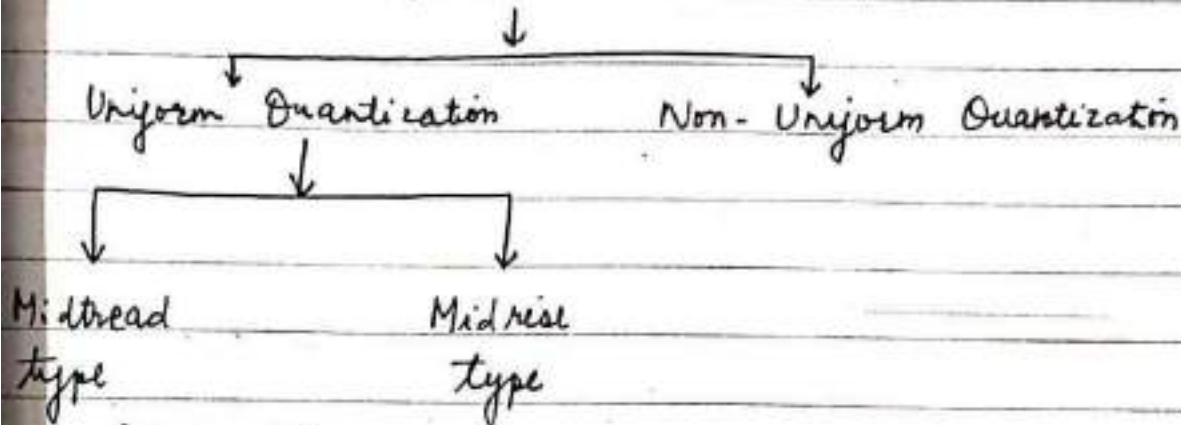 Uniform Quantization Non-Uniform Quantization
Midtread Midrise
type type